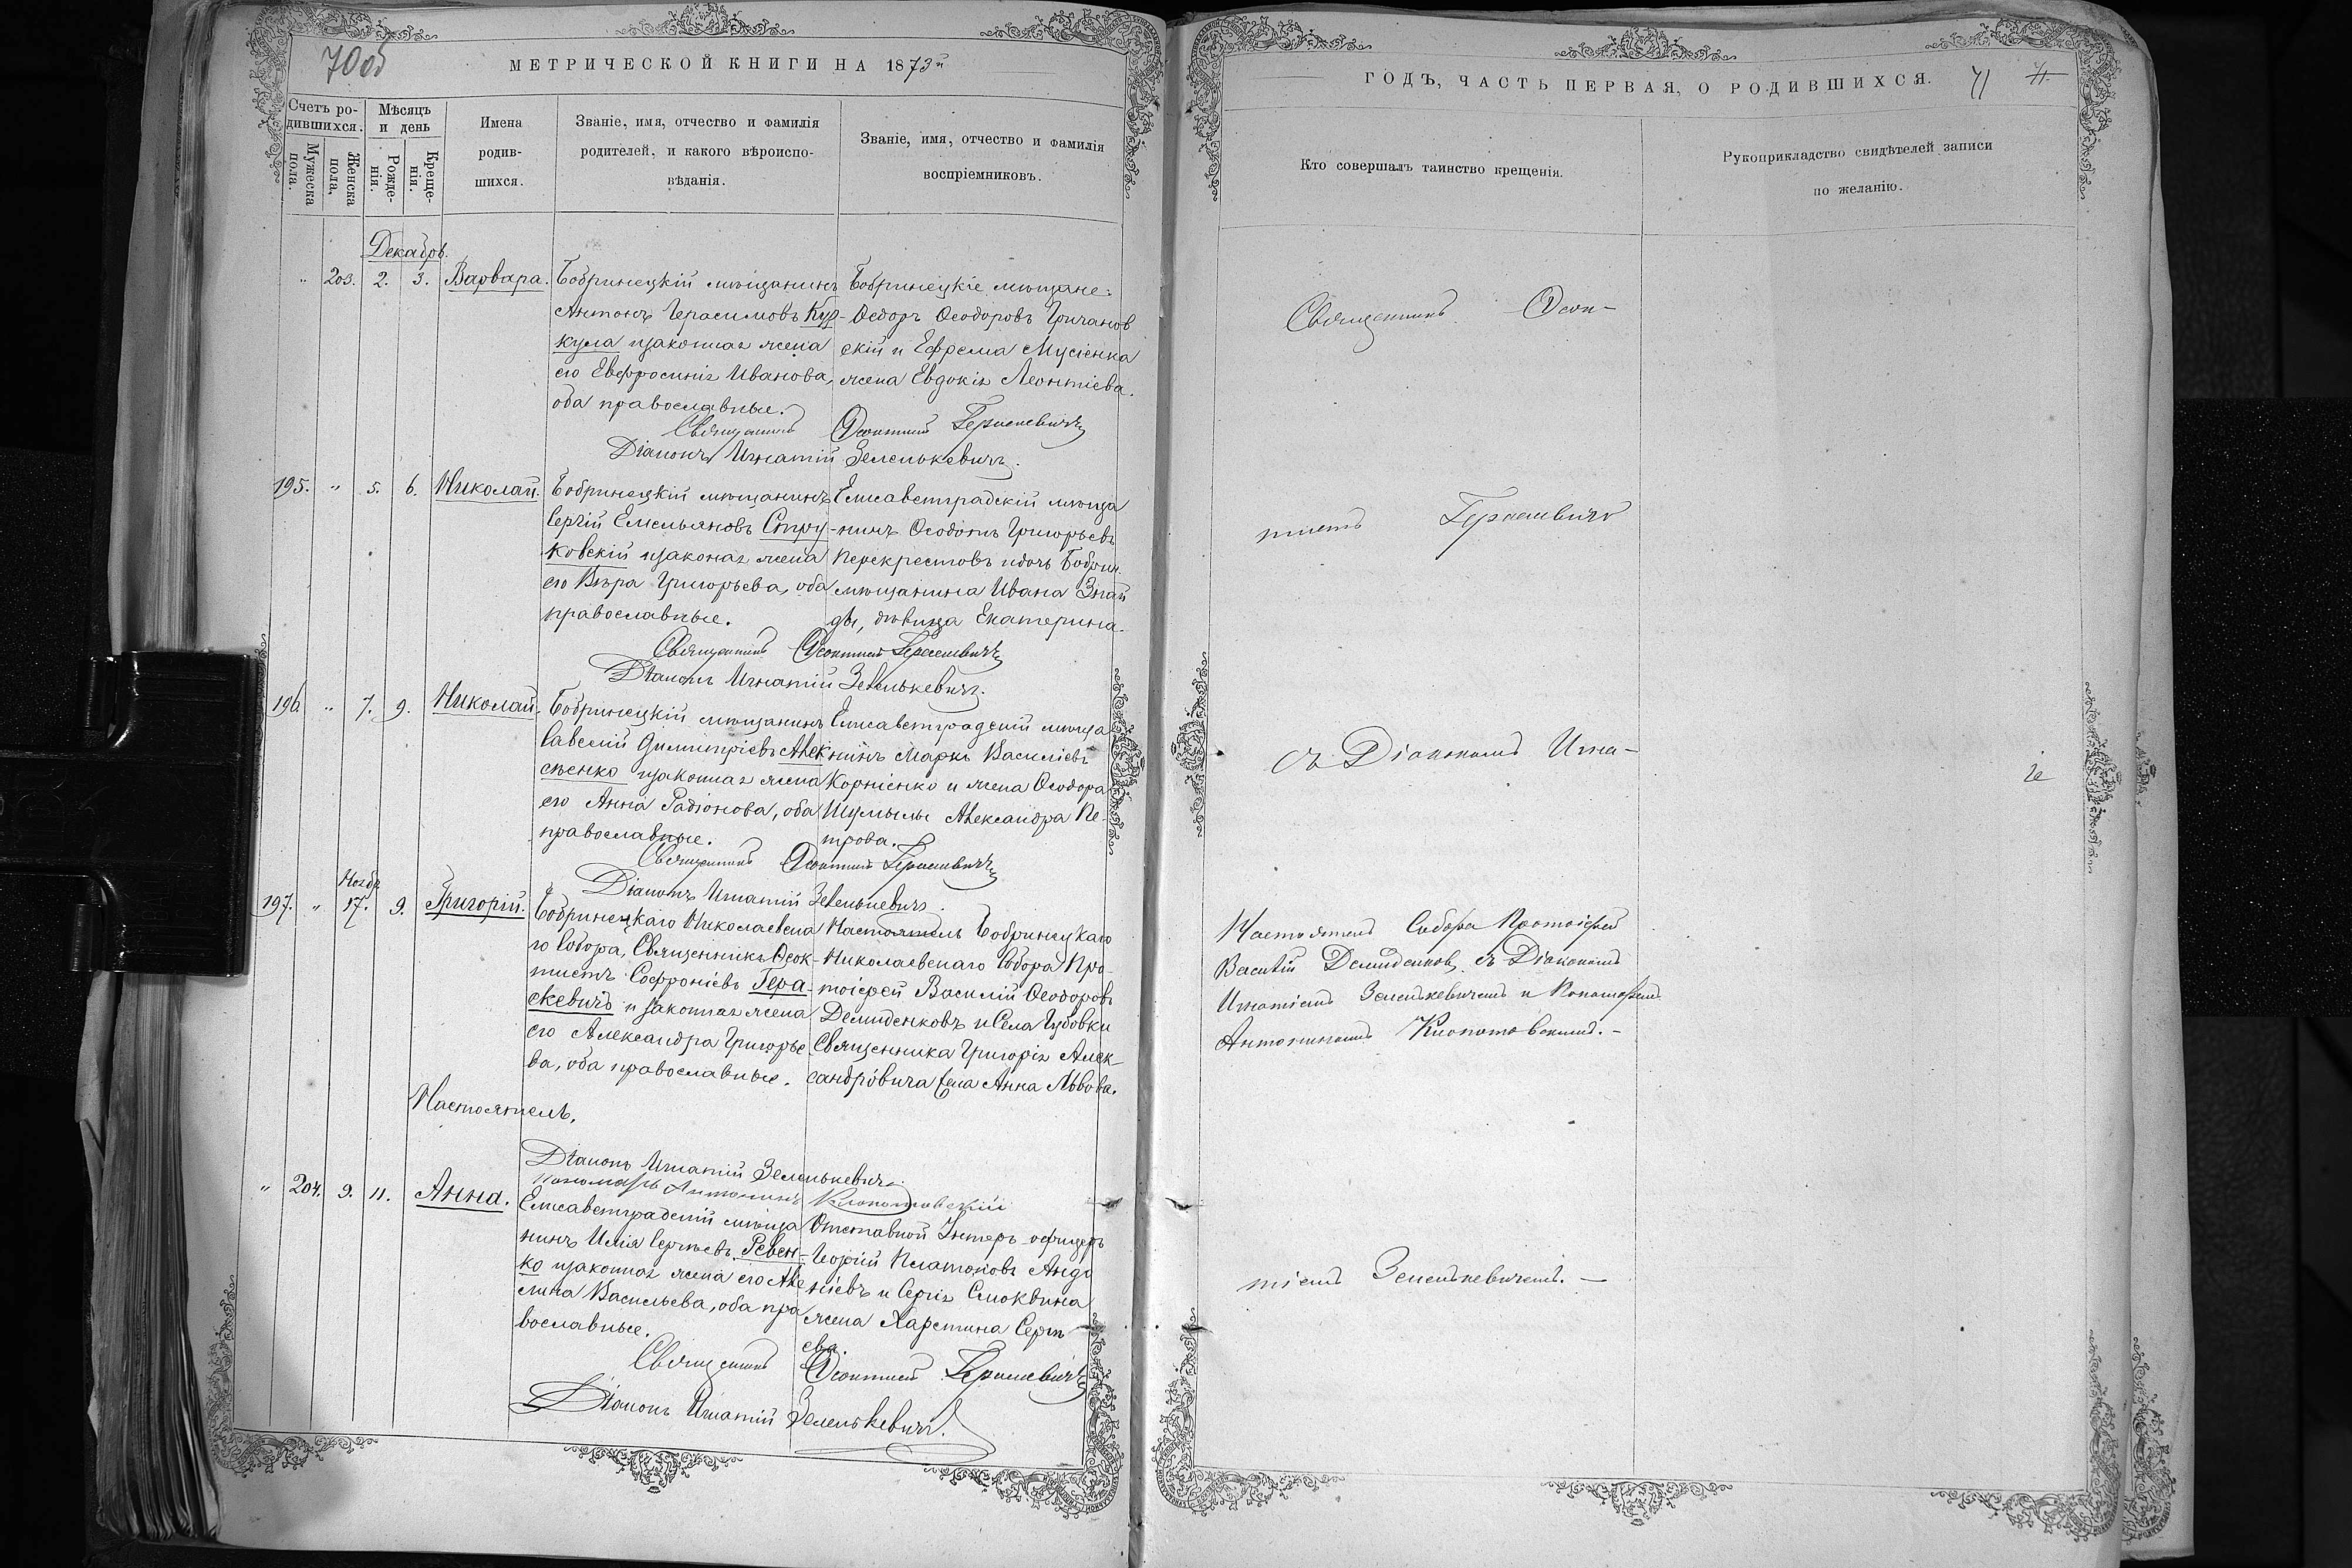 70об
МЕТРИЧЕСКОЙ КНИГИ НА 1873й
Счетъ ро-
дившихся.
Мужеска
пола.
Женска
пола,
Мѣсяцъ
и день
Рожде-
нія.
Креще-
нія.
Имена
родив-
шихся.
Званіе, имя, отчество и фамилія
родителей, и какого вѣроиспо-
вѣданія.
Званіе, имя, отчество и фамилія
воспріемниковъ.
Декабрь.
" 203. 2. 3. Варвара.
Бобринецкій мѣщанинъ
Антонъ Герасимовъ
кула изаконная жена
его Евфросинія Иванова,
оба православные.
Бобринецкіе мѣщане:
Ѳедоръ Ѳеодоровъ Гричанов
скій и Ефрема Мусіенка
жена Евдокія Леонтіева.
Священникъ Ѳеоктистъ Гераскевичъ
Діаконъ Игнатій Зеленькевичъ.
195. " 5. 6. Николай.
Бобринецкій мѣщанинъ
Сергій Емельяновъ Стру-
ковскій изаконая жена
его Вѣра Григорьева, оба
православные.
Елисаветградскій мѣща
нинъ Ѳеодотъ Григорьевъ
Перекрестовъ идочь Бобрин.
мѣщанина Ивана Знай
ды, дѣвица Екатерина.
Священникъ Ѳеоктистъ Гераскевичъ
Діаконъ Игнатій Зеленькевичъ.
196 " 7. 9. Николай.
Бобринецкій мѣщанинъ
Савелій Димитріевъ Алек
сѣенко изаконная жена
его Анна Радіонова, оба
православные.
Елисаветградскій мѣща
нинъ Марко Василіевъ
Корніенко и жена Ѳеодора
Шумылы Александра Пе-
трова.
Священникъ Ѳеоктистъ Гераскевичъ
Діаконъ Игнатій Зеленькевичъ.
Ноябр
197. " 17. 9. Григорій.
Бобринецкаго Николаевска
го Собора, Священникъ Ѳеок-
тистъ Софроніевъ Гера-
скевичъ и законная жена
его Александра Григорье
ва, оба православные.
Настоятель Бобринецкаго
Николаевскаго Собора Про-
тоіерей Василій Ѳеодоровъ
Демиденковъ и Села Губовки
Священника Григорія Алек-
сандровича жена Анна Львова.
Настоятель.
Діаконъ Игнатій Зеленькевичъ.
Пономарь Антонинъ Клопотовскій
" 204. 9. 11. Анна.
Елисаветградскій мѣща
нинъ Илія Сергѣевъ Ревен-
ко изаконная жена его Аке
лина Васильева, оба пра
вославные.
Отставной Унтеръ-офицеръ
Георгій Платоновъ Андо
ніевъ и Сергія Смоквина
жена Харетина Сергѣ
ева.
Священникъ Ѳеоктистъ Гераскевичъ
Діаконъ Игнатій Зеленькевичъ.
ГОДЪ, ЧАСТЬ ПЕРВАЯ, О РОДИВШИХСЯ. 71 71.
Кто совершалъ таинство крещенія.
Рукоприкладство свидѣтелей записи
по желанію.
Священникъ Ѳеок-
тистъ Гераскевичъ
съ Діакономъ Игна-
Настоятель Собора Протоіерей
Василій Демиденковъ съ Діакономъ
Игнатіемъ Зеленькевичемъ и Пономаремъ
Антониномъ Клопотовскимъ. —
тіемъ Зеленькевичемъ. —